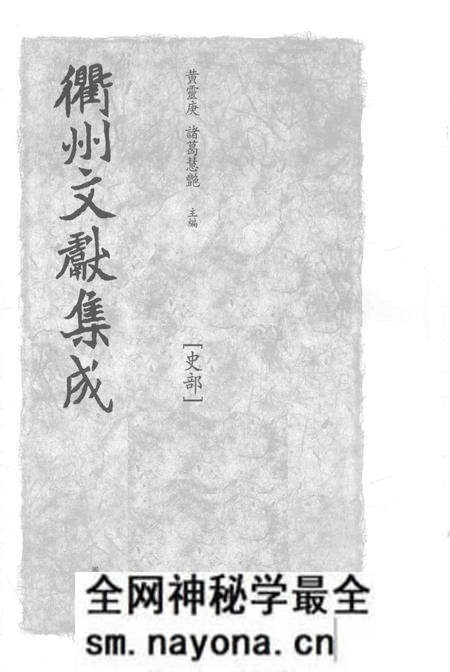 衢州文獻集成
黃靈庚 諸葛慧艷 主編
[史部]
國
全网神秘学最全
sm.nayona.cn